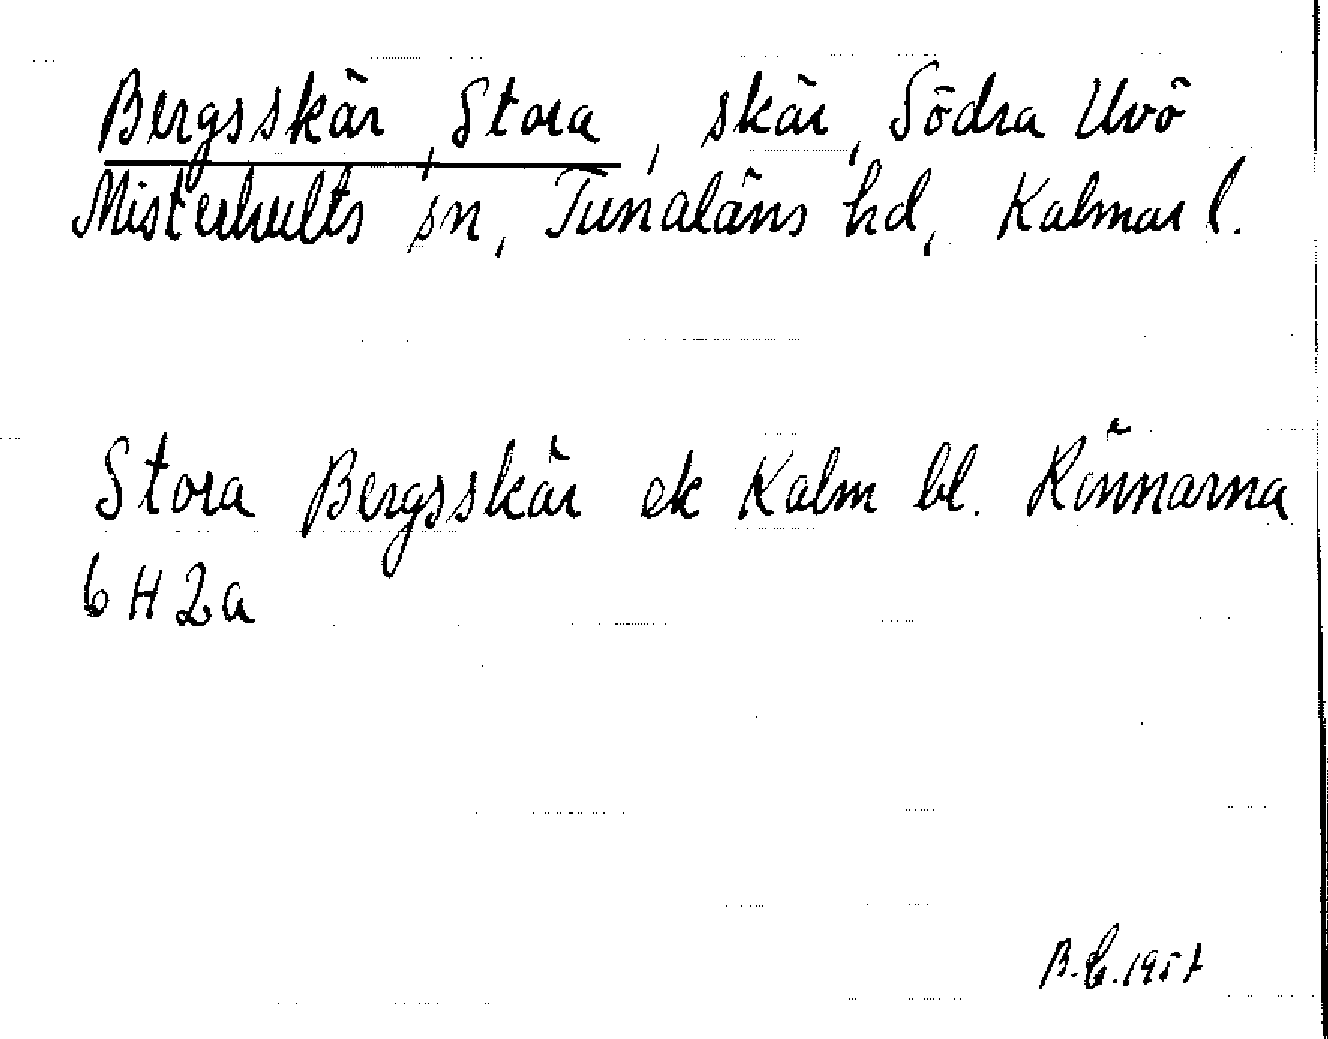 Bergsskär, Stora, skär, Södra Uvö
Misterhults sn, Tunaläns hd, Kalmar l.
Stora Bergsskär ek Kalm bl. Rönnarna
6 H 2 a
1957